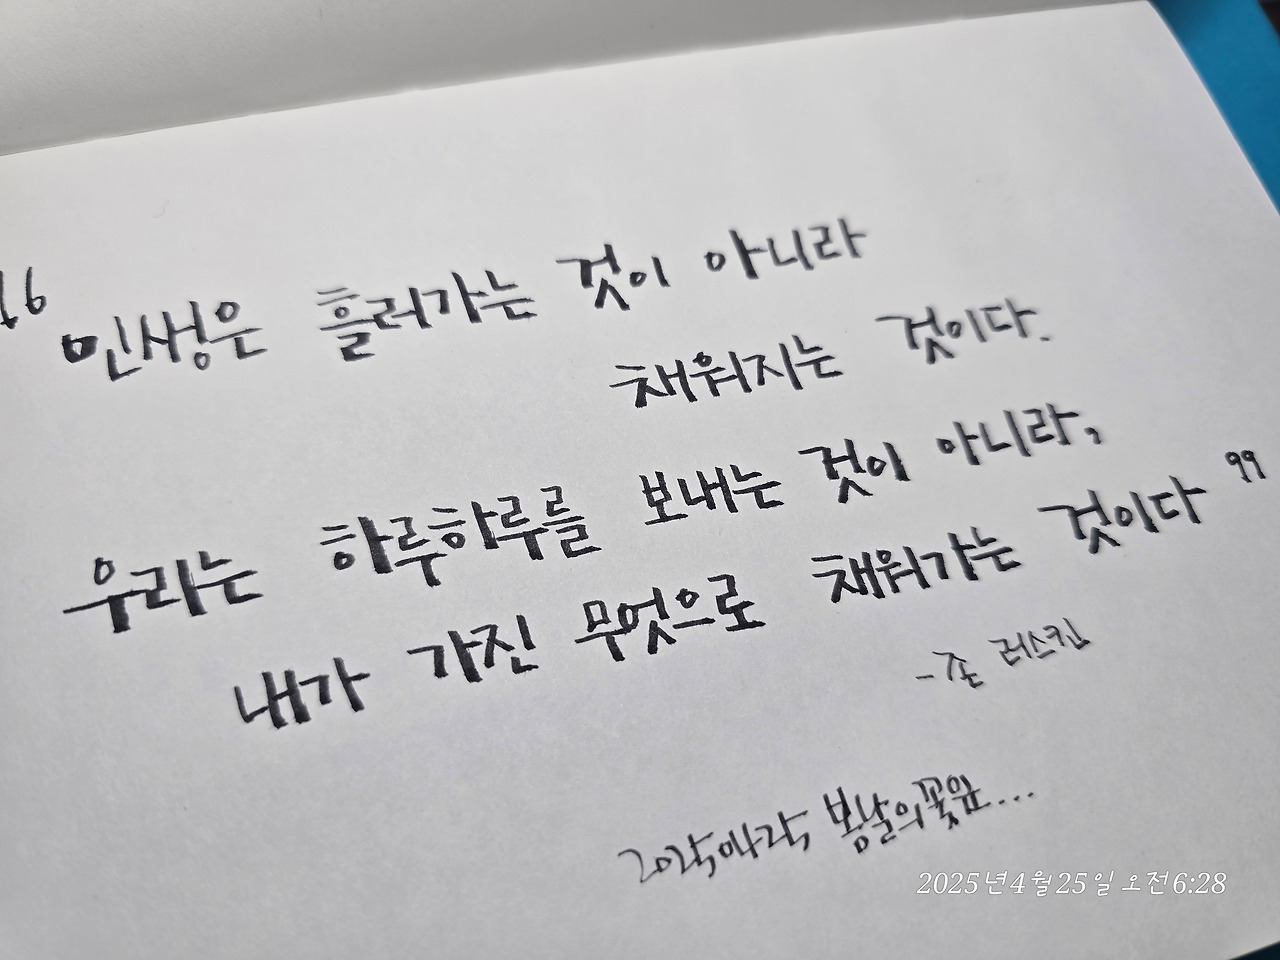 “ 인생은 흘러가는 것이 아니라
채워지는 것이다.
우리는 하루하루를 보내는 것이 아니라,
내가 가진 무엇으로 채워가는 것이다 ”
- 존 러스킨
봄날의 꽃잎....
2025년4월25일 오전6:28